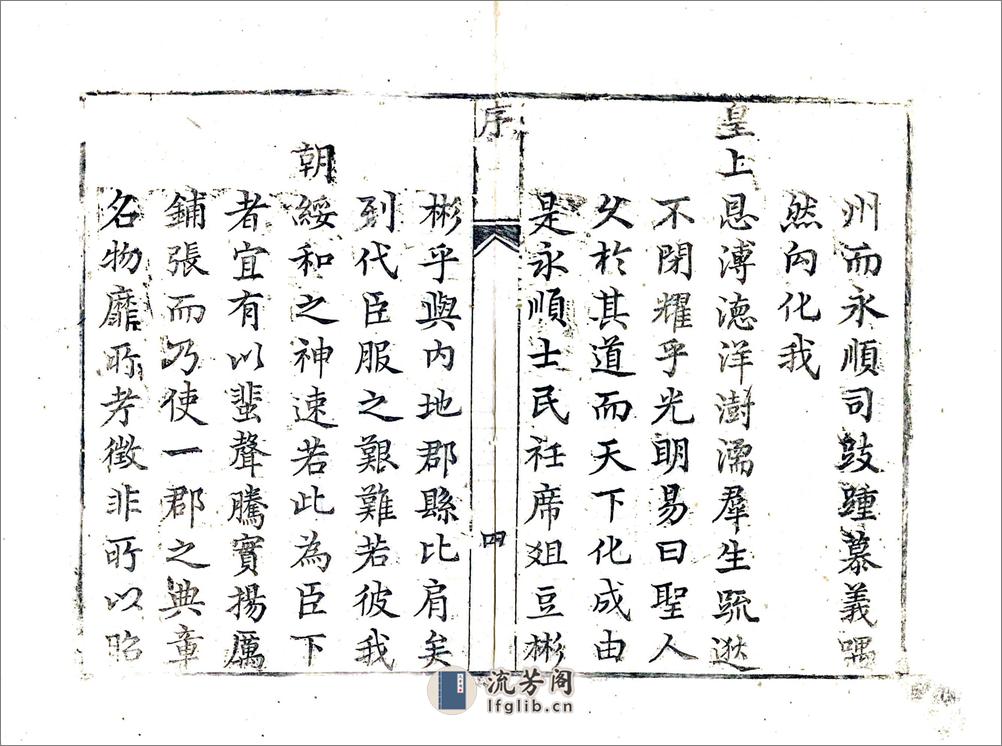 州而永順司跂踵慕義喁
然向化我
皇上恩溥德洋澍濡羣生䟽逖
不閉耀乎光明易曰聖人
久於其道而天下化成由
是永順士民衽席俎豆彬
序
四
彬乎與內地郡縣比肩矣
到代臣服之艱難若彼我
朝綏和之神速若此為臣下
者宜有以蜚聲騰實揚厲
鋪張而乃使一郡之典章
名物靡所考徵非所以昭
流芳阁
lfglib.cn